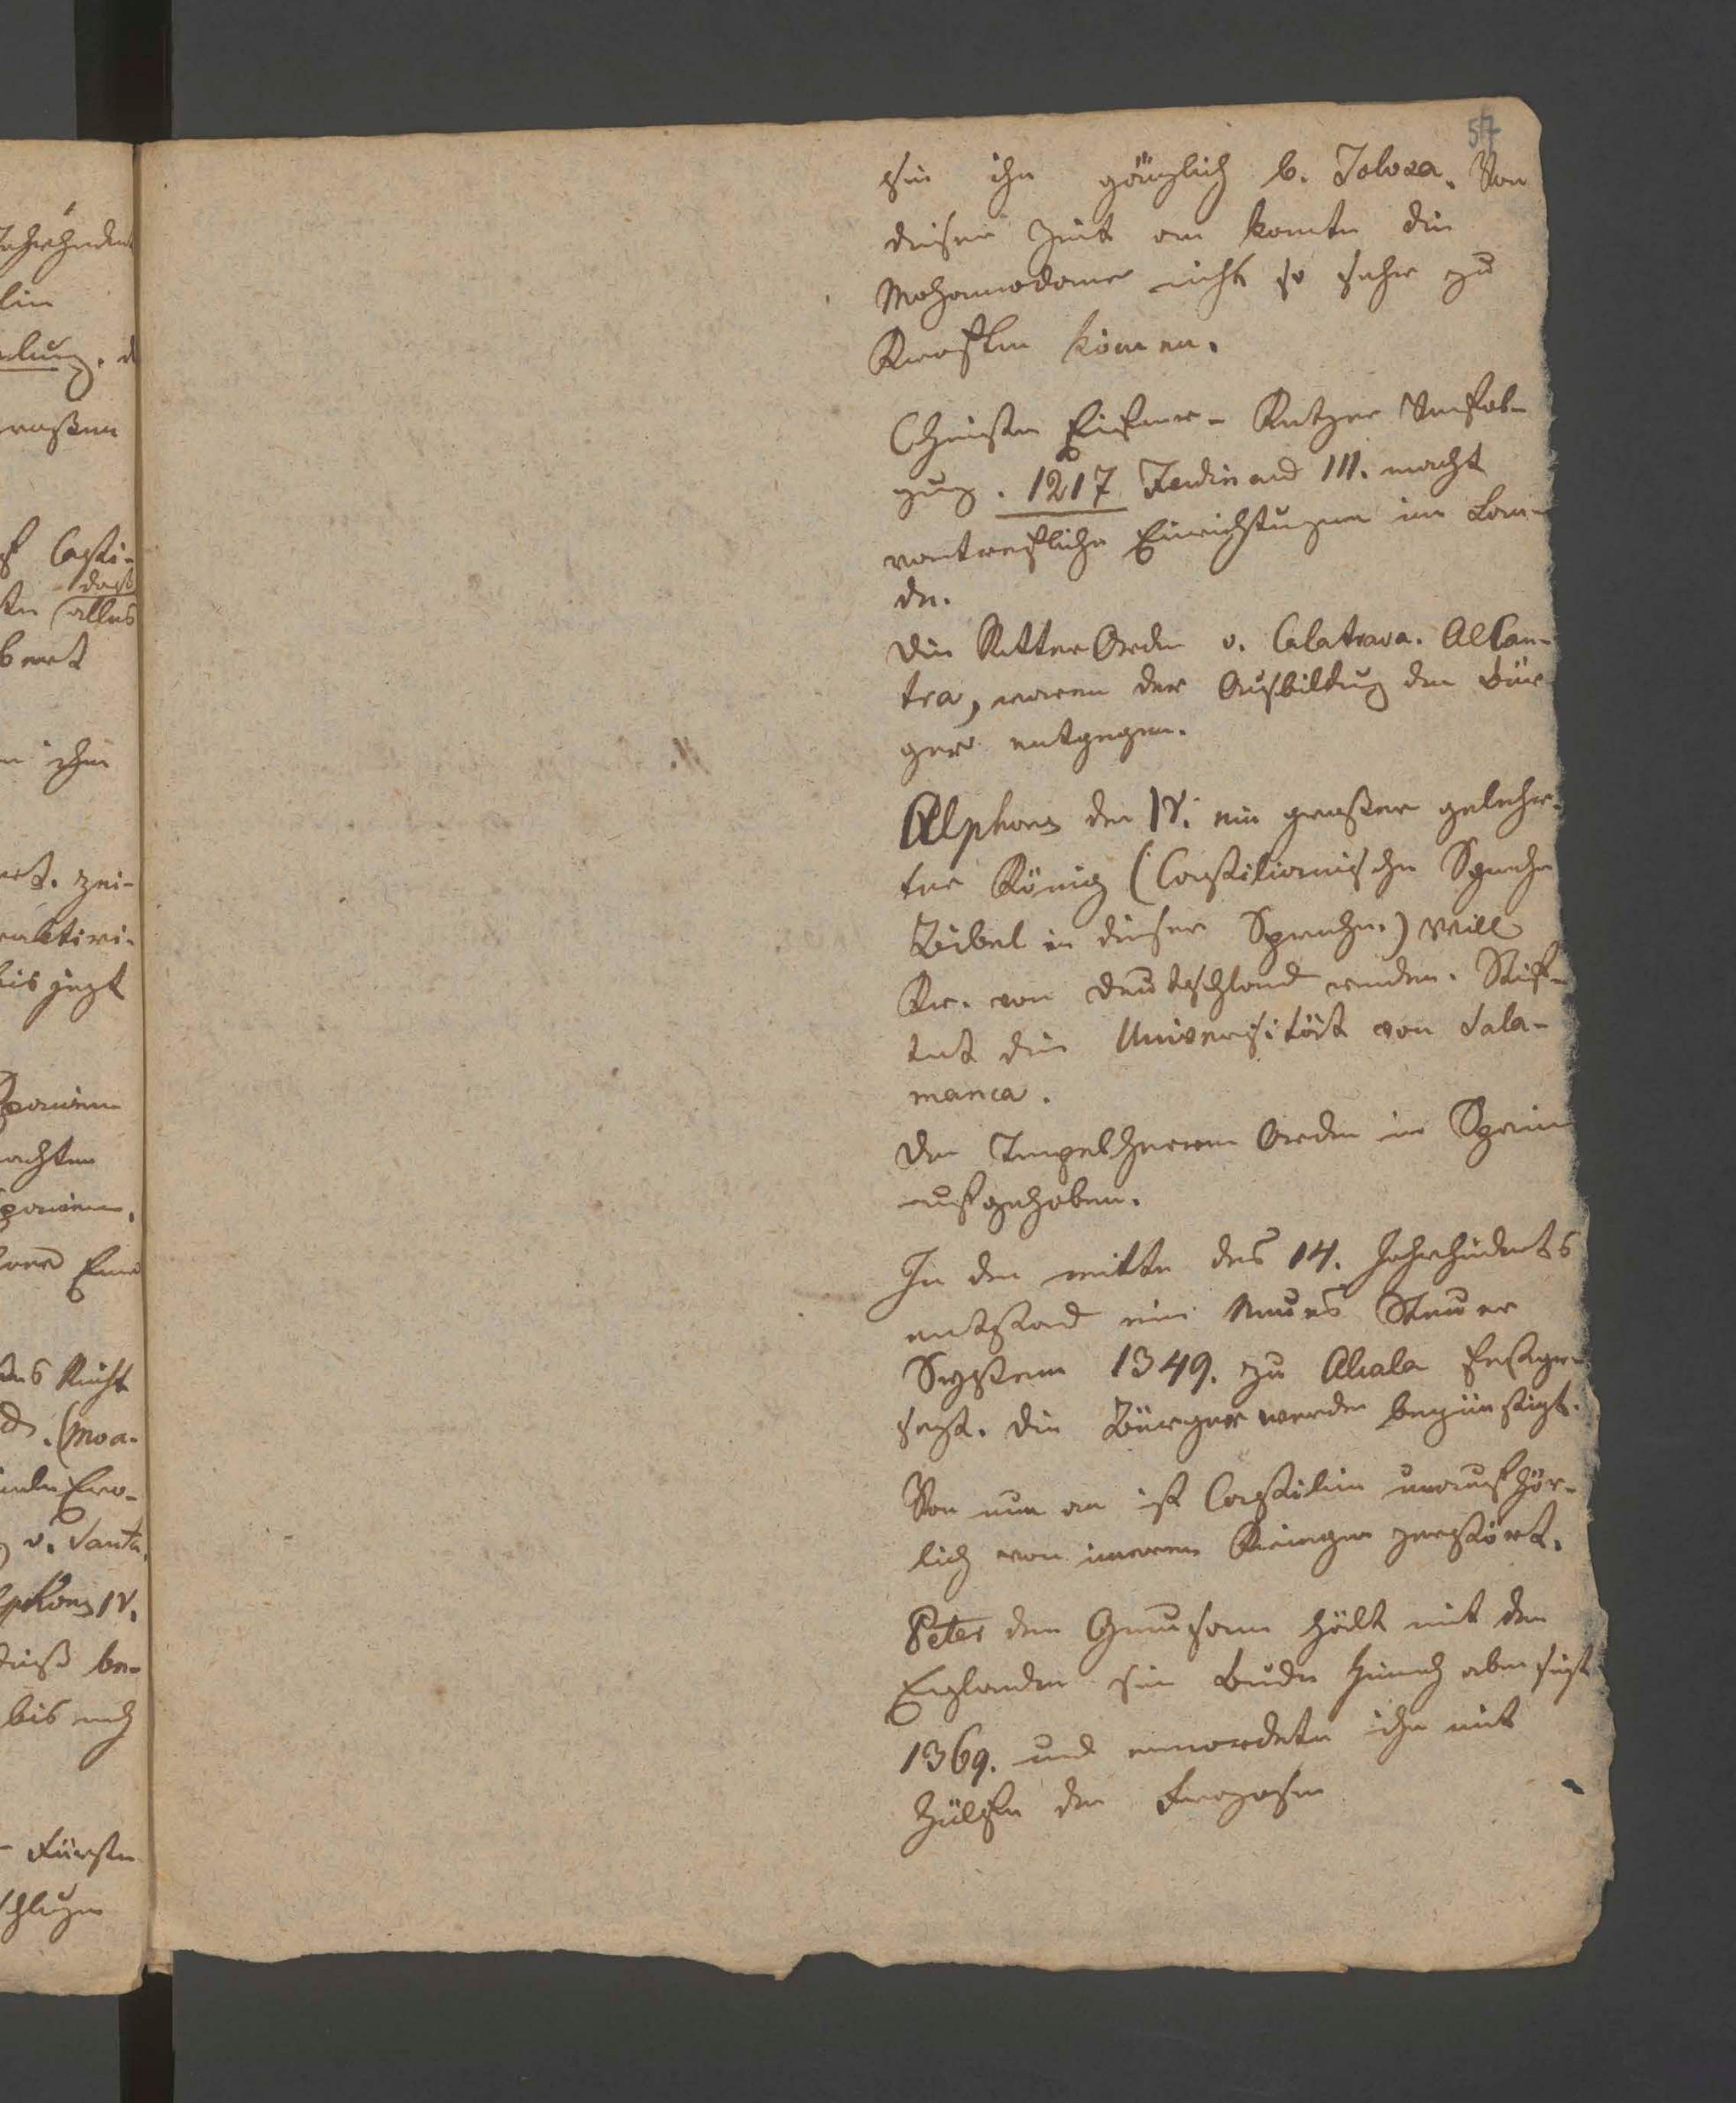 57
sie ihn gänzlich b. Tolosa. Von
dieser Zeit an konten die
Mohamedaner nicht so sehr zu
Kräften kom̄en.
Christen Eifer - Ketzer Verfol-
gung. 1217 Ferdinand III. macht
vortrefliche Einrichtungen im Lan-
de.
Die Ritter Orden v. Calatrava. Alcan-
tra, waren der Ausbildung der Bür-
ger entgegen.
Alphons der IV. ein großer gelehr-
ter König (Castilianische Sprache
Bibel in dieser Sprache.) Will
Kr. von Deutschland werden. Stif-
tet die Universität von Sala-
manca.
Der Tempelherren Orden in Spanien
aufgehoben.
In der mitte des 14. Jahrhunderts
entstand ein Neues Steuer
System 1349. zu Alcala festge-
setzt. Die Bürger werden begünstigt.
Von nun an ist Castilien unaufhör-
lich von inneren Kriegen zerstört.
Peter der Grausame hält mit den
Engländer sein Bruder Heinrich aber siegt
1369. und ermordete ihn mit
Hülfe der Franzosen
Casti-
dast
alles
ihm
bis jezt
Spanien
achten
Spanien.
Recht
(Moa-
v. Santa.
Alphons IV.
be-
bis nach
Fürsten